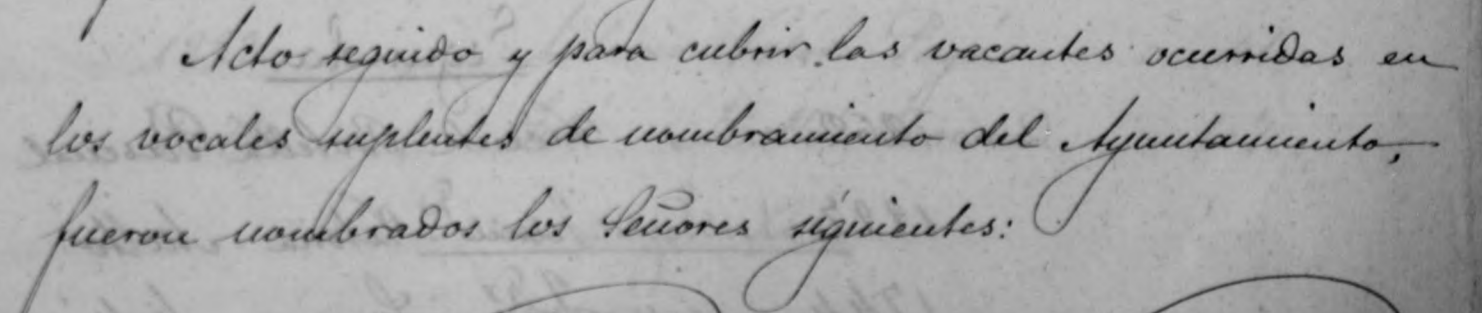 Acto seguido y para cubrir las vacantes ocurridas en
los vocales suplentes de nombramiento del Ayuntamiento,
fueron nombrados los Señores siguientes: